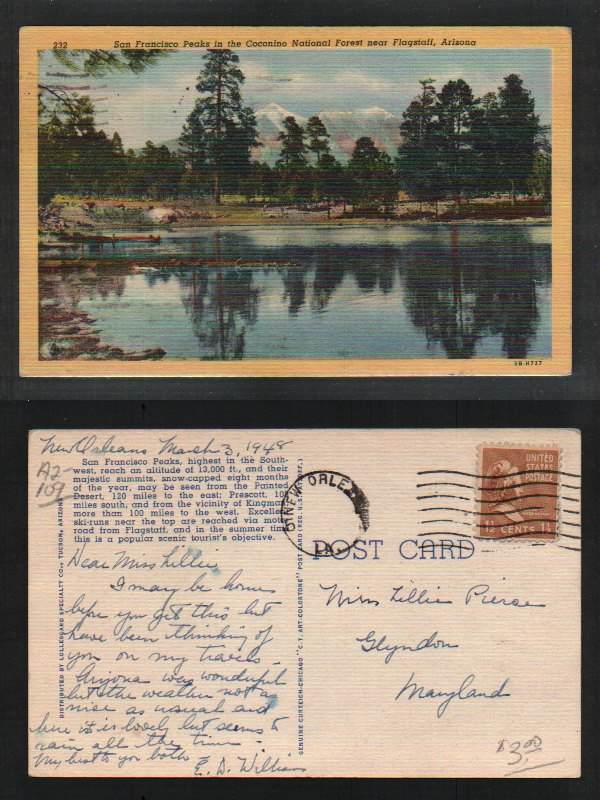 232 San Francisco Peaks in the Coconino National Forest near Flagstaff, Arizona
5B-H737
New Orleans March 3, 1948
A2-
109
San Francisco Peaks, highest in the South-
west, reach an altitude of 13,000 ft., and their
majestic summits, snow-capped eight months
of the year, may be seen from the Painted
Desert, 120 miles to the east; Prescott, 100
miles south, and from the vicinity of Kingman
more than 100 miles to the west. Excellent
ski-runs near the top are reached via motor
road from Flagstaff, and in the summer time
this is a popular scenic tourist's objective.
Dear Miss Lillie
I may be home
before you get this but
have been thinking of
you on my travels.
Arizona was wonderful
but the weather not as
nice as usual and
here it is lovely but seems to
rain all the time.
My best to you both -
E. D. Williams
DISTRIBUTED BY LOLLESGARD SPECIALTY CO., TUCSON, ARIZONA
GENUINE CURTEICH-CHICAGO "C. T. ART-COLORTONE" POST CARD (REG. U.S. PAT. OFF.)
NEW ORLEANS
LA.
UNITED
STATES
POSTAGE
1½ CENTS 1½
POST CARD
Miss Lillie Pierce
Glyndon
Maryland
$3.00